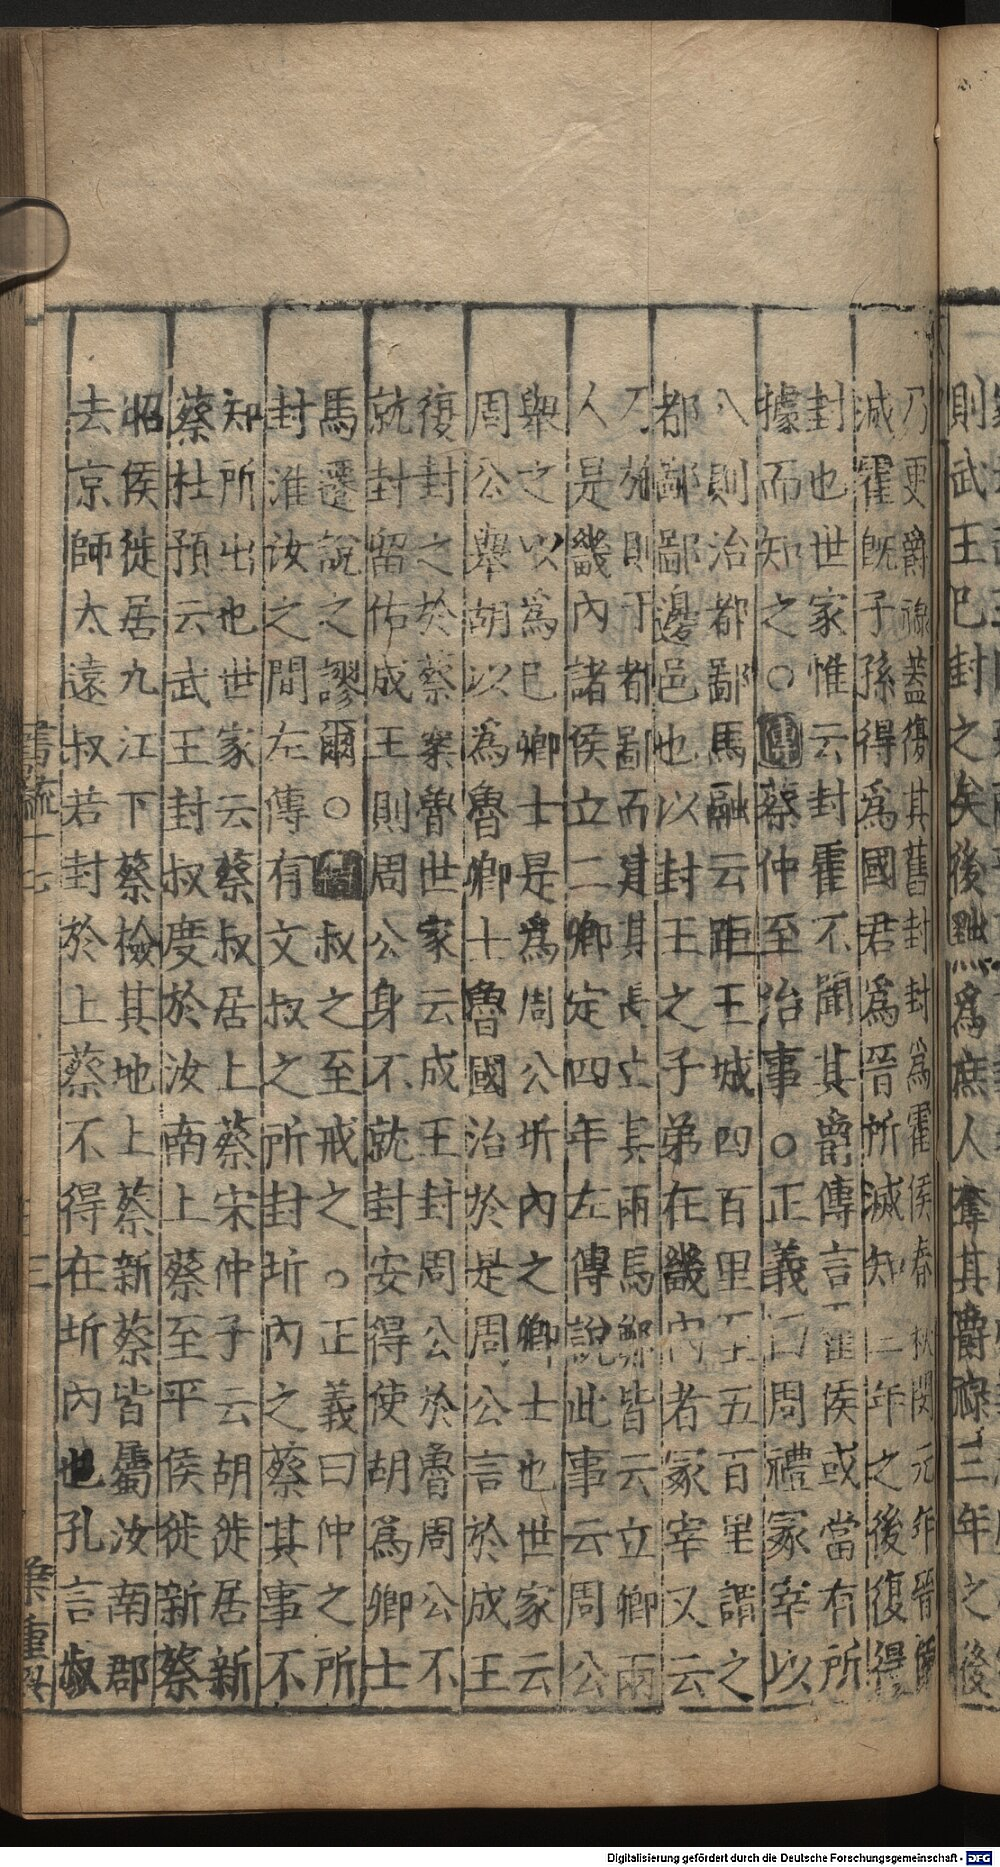 則武王已封之矣後黜爲庶人奪其爵祿三年之後
乃更爵祿蓋復其舊封封爲霍侯春秋閔元年晉侯
滅霍既子孫得爲國君爲晉所滅知三年之後復得
封也世家惟云封霍不聞其爵傳言霍侯或當有所
據而知之○傳蔡仲至治事○正義曰周禮冢宰以
八則治都鄙馬融云距王城四百里至五百里謂之
都鄙鄙邊邑也以封王之子弟在畿內者冢宰又云
乃施則于都鄙而其長立其兩馬鄭皆云立卿兩
人是畿內諸侯立二卿定四年左傳說此事云周公
舉之以爲已卿士是爲周公圻內之卿士也世家云
周公舉胡以爲魯卿士魯國治於是周公言於成王
復封之於蔡案魯世家云成王封周公於魯周公不
就封留佑成王則周公身不就封安得使胡爲卿士
馬遷說之謬爾○傳叔之至戒之○正義曰仲之所
封淮汝之間左傳有文叔之所封圻內之蔡其事不
知所出也世家云蔡叔居上蔡宋仲子云胡徙居新
蔡杜預云武王封叔度於汝南上蔡至平侯徙新蔡
昭侯徙居九江下蔡檢其地上蔡新蔡皆屬汝南郡
去京師太遠叔若封於上蔡不得在圻內也孔言叔
書疏十七
三
Digitalisierung gefördert durch die Deutsche Forschungsgemeinschaft - DFG